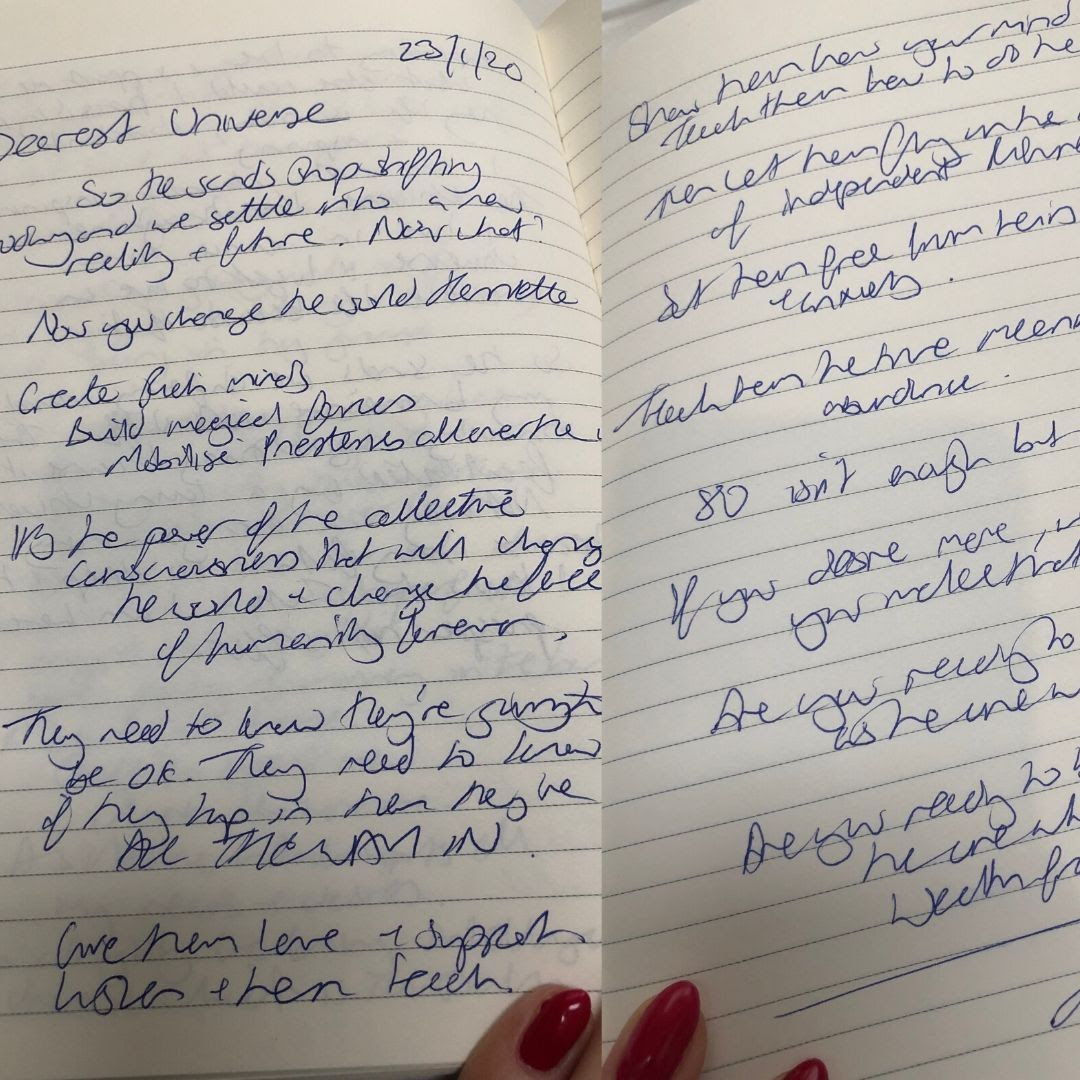 23/1/20
Dearest Universe
So the sands stop shifting
and we settle into a new
reality + future. Now what?
Now you change the world Henriette
Create rich minds
Build magical
Mobilise all over the
It's the power of the collective
consciousness that will change
the world + change the face
of humanity forever.
They need to know they're going to
be OK. They need to know
if they hop in then they're
ALL THE WAY IN.
Give them love + support
listen + then teach.
Show them how your mind
Teach them how to do the
Then let them fly in the
of independent
Set them free from their
+ anxiety.
Teach them the true meaning
abundance.
80 isn't enough but
If you desire more,
you
Are you ready to
as the one
Are you ready to
the one who
Wealth